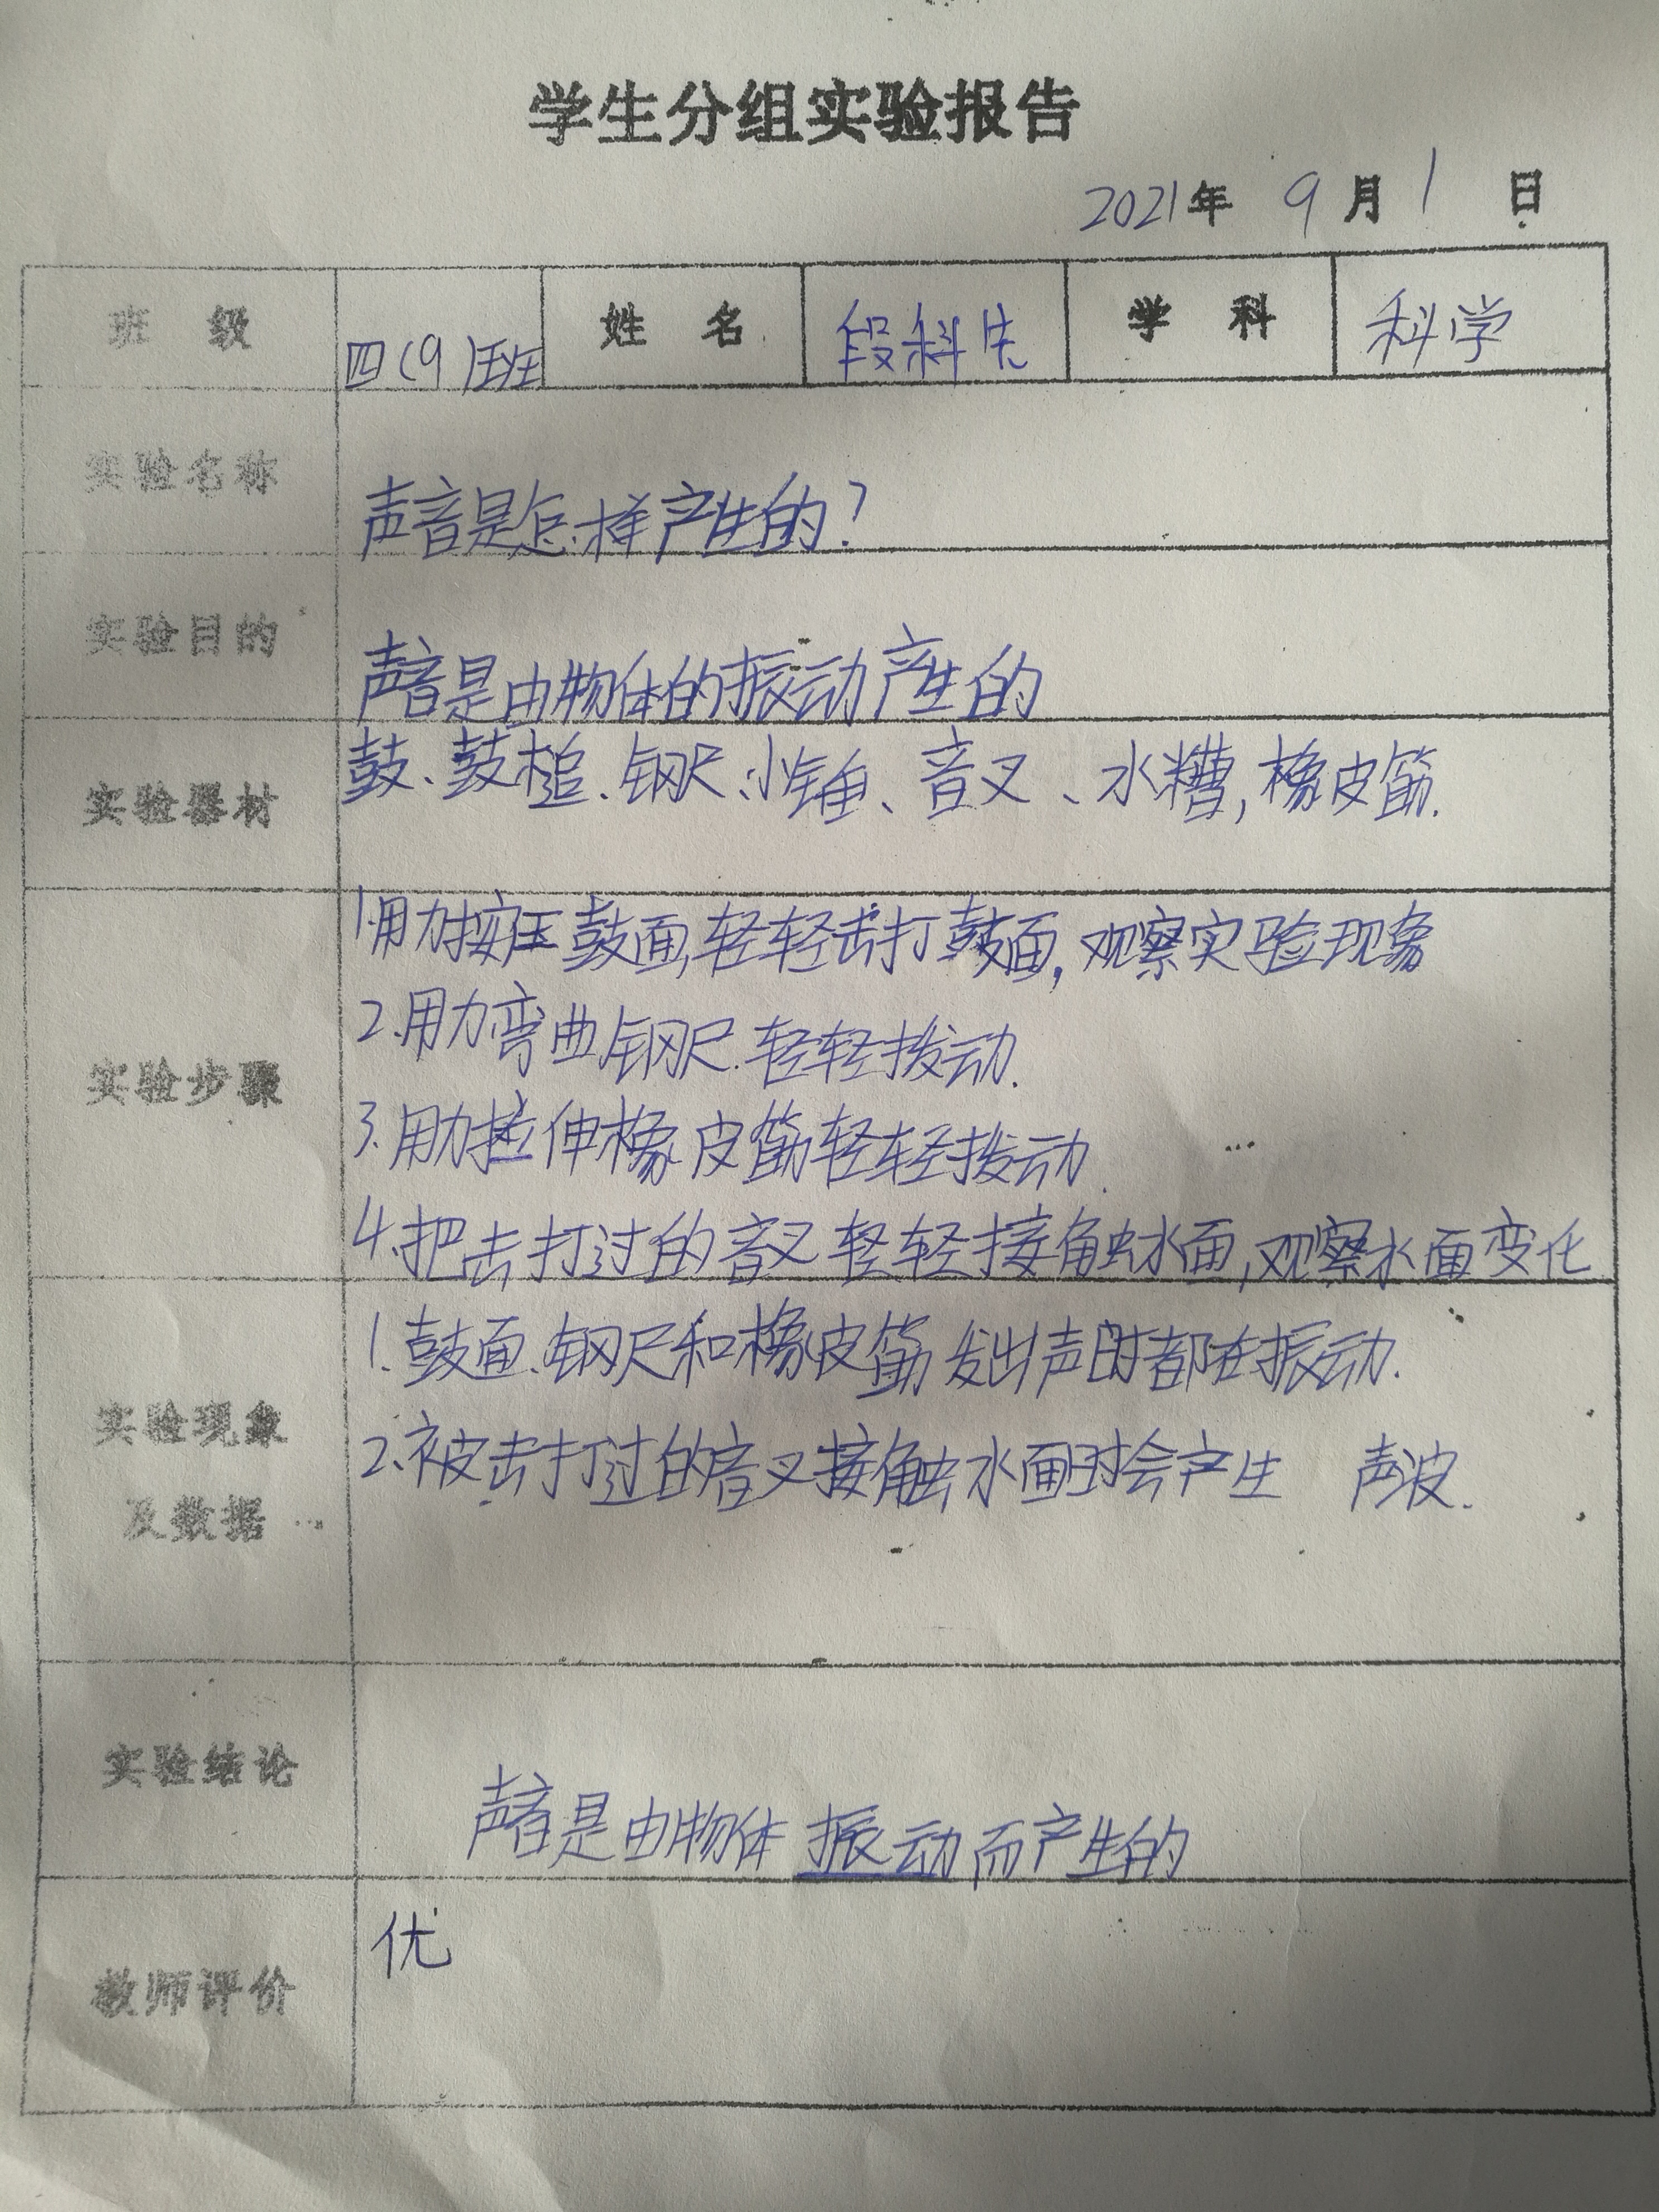 学生分组实验报告
2021年 9月1日
班级 四(9)班 姓名 段科先 学科 科学
实验名称 声音是怎样产生的?
实验目的 声音是由物体的振动产生的
实验器材 鼓、鼓槌、钢尺、小锤、音叉、水糟,橡皮筋.
实验步骤
1.用力按压鼓面,轻轻击打鼓面,观察实验现象
2.用力弯曲钢尺.轻轻拨动.
3.用力拉伸橡皮筋轻轻拨动.
4.把击打过的音叉轻轻接触水面,观察水面变化
实验现象及数据
1.鼓面、钢尺和橡皮筋发出声时都在振动.
2.被击打过的音叉接触水面时会产生 声波.
实验结论 声音是由物体振动而产生的
教师评价 优